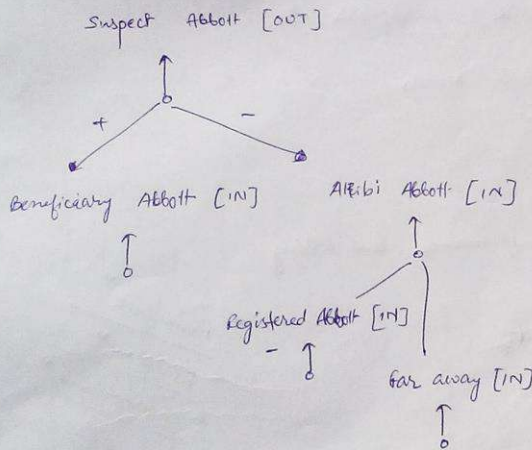 Suspect Abbott [OUT]
+ -
Beneficiary Abbott [IN] Alibi Abbott [IN]
Registered Abbott [IN]
-
Far away [IN]